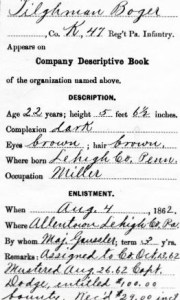 Tilghman Boger
, Co. K, 47 Reg't Pa. Infantry.
Appears on
Company Descriptive Book
of the organization named above.
DESCRIPTION.
Age 22 years; height 5 feet 6½ inches.
Complexion Dark
Eyes brown; hair brown.
Where born Lehigh Co, Penn.
Occupation Miller
ENLISTMENT.
When Aug. 4, 1862.
Where Allentown Lehigh Co. Pa
By whom Maj. ; term 3 y'rs.
Remarks: Assigned to Co. Oct. 12, 62
Mustered Aug. 26, 62 Capt.
Dodge, entitled $100.00
bounty. Rec'd $29.00